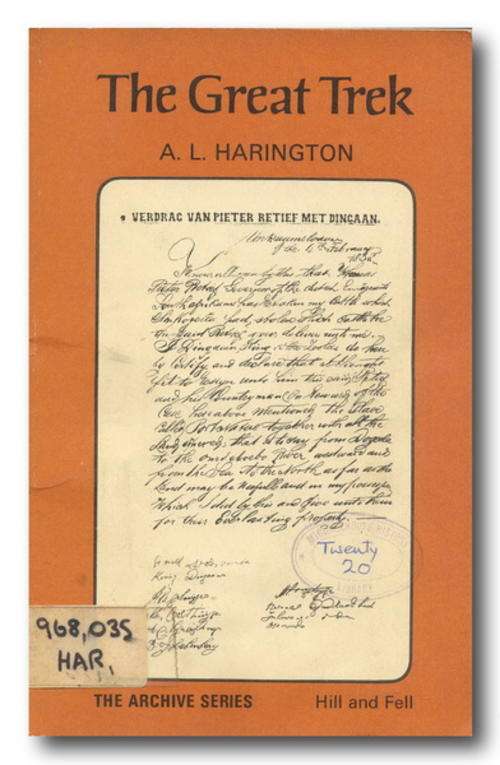 The Great Trek
A. L. HARINGTON
VERDRAG VAN PIETER RETIEF MET DINGAAN.
Know all men by this that
Pieter Retief Governor of the dutch Emigrants
has Retaken my Cattle which
had stolen which Cattle he
the said Retief now deliver unto me.
I Dingaan King of the Zoolas do here
by Certify and declare that I thought
fit to Resign unto him the said Retief
and his Countrymen on Reward of the
Case hereabove Mentioned the Place
Called Port Natal together with all the
Land annexed, that is to say from Dogela
to the River westward and
from the Sea to the North as far as the
Land may be Usefull and in my possession
Which I did by this and Give unto them
for their Everlasting property.
Twenty
20
LIBRARY
968,035
HAR,
THE ARCHIVE SERIES
Hill and Fell